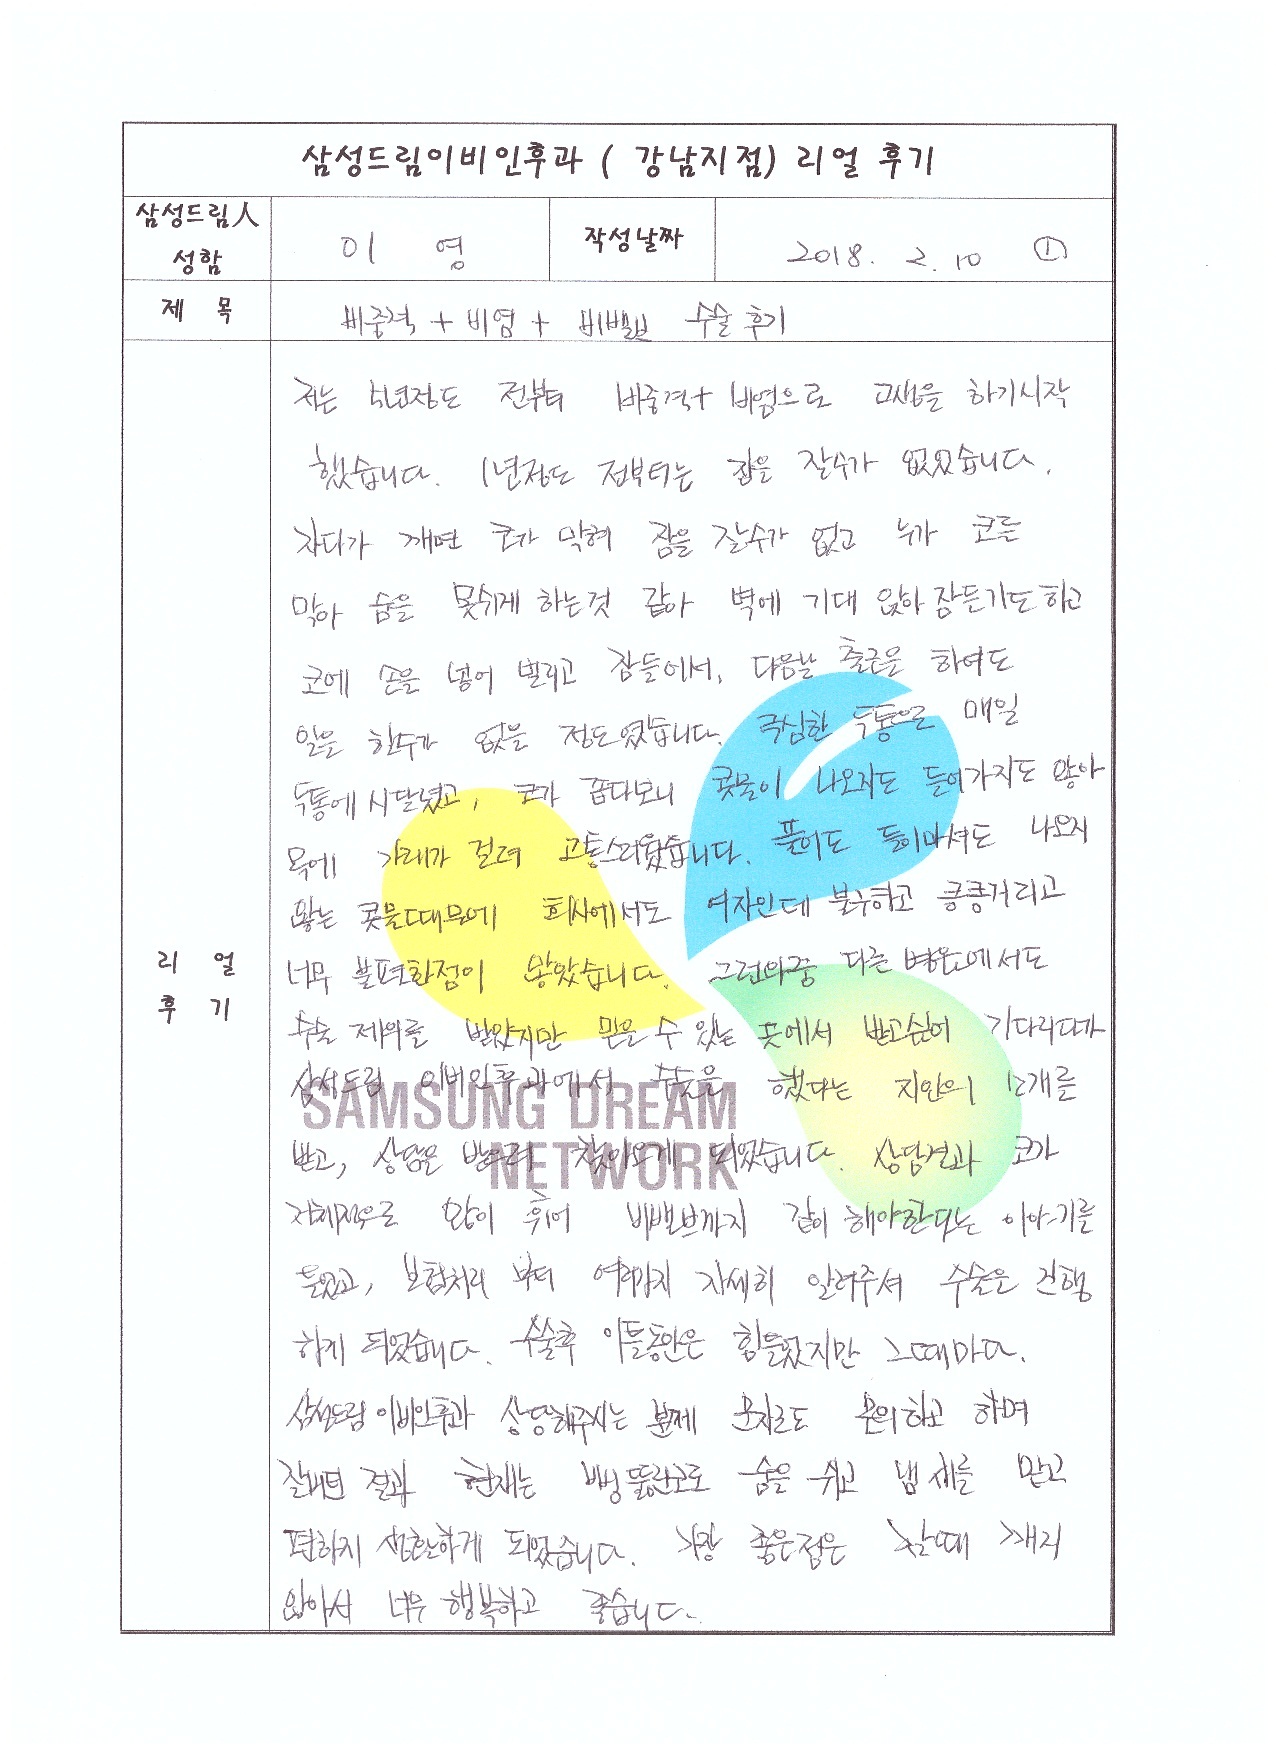 삼성드림이비인후과 ( 강남지점) 리얼 후기
삼성드림人 성함
이 영
작성날짜
2018. 2. 10 ①
제 목
비중격 + 비염 + 비밸브 수술 후기
리 얼 후 기
저는 5년정도 전부터 비중격+ 비염으로 고생을 하기시작
했습니다. 1년정도 전부터는 잠을 잘수가 없었습니다.
자다가 깨면 코가 막혀 잠을 잘수가 없고 누가 코를
막아 숨을 못쉬게 하는것 같아 벽에 기대 앉아 잠든기도 하고
코에 손을 넣어 벌리고 잠들어서, 다음날 출근은 하여도
일을 할수가 없을 정도였습니다. 극심한 두통으로 매일
두통에 시달렸고, 코가 좁다보니 콧물이 나오지도 들어가지도 않아
목에 가래가 걸려 고통스러웠습니다. 풀어도 들이마셔도 나오지
않는 콧물때문에 회사에서도 여자인데 불구하고 킁킁거리고
너무 불편한점이 많았습니다. 그런와중 다른 병원에서도
수술 제의를 받았지만 믿을 수 있는 곳에서 받고싶어 기다리다가
삼성드림 이비인후과에서 수술을 했다는 지인의 소개를
받고, 상담을 받으러 찾아오게 되었습니다. 상담결과 코가
전체적으로 많이 휘어 비밸브까지 같이 해야한다는 이야기를
들었고, 보험처리 부터 여러가지 자세히 알려주셔 수술은 진행
하게 되었습니다. 수술후 이틀동안은 힘들었지만 그때마다.
삼성드림 이비인후과 상담해주시는 분께 문자로도 문의하고 하며
잘버틴 결과 현재는 뻥 뚫린코로 숨을 쉬고 냄새를 맡고
편하게 생활하게 되었습니다. 가장 좋은점은 잘때 깨지
않아서 너무 행복하고 좋습니다.
SAMSUNG DREAM
NETWORK